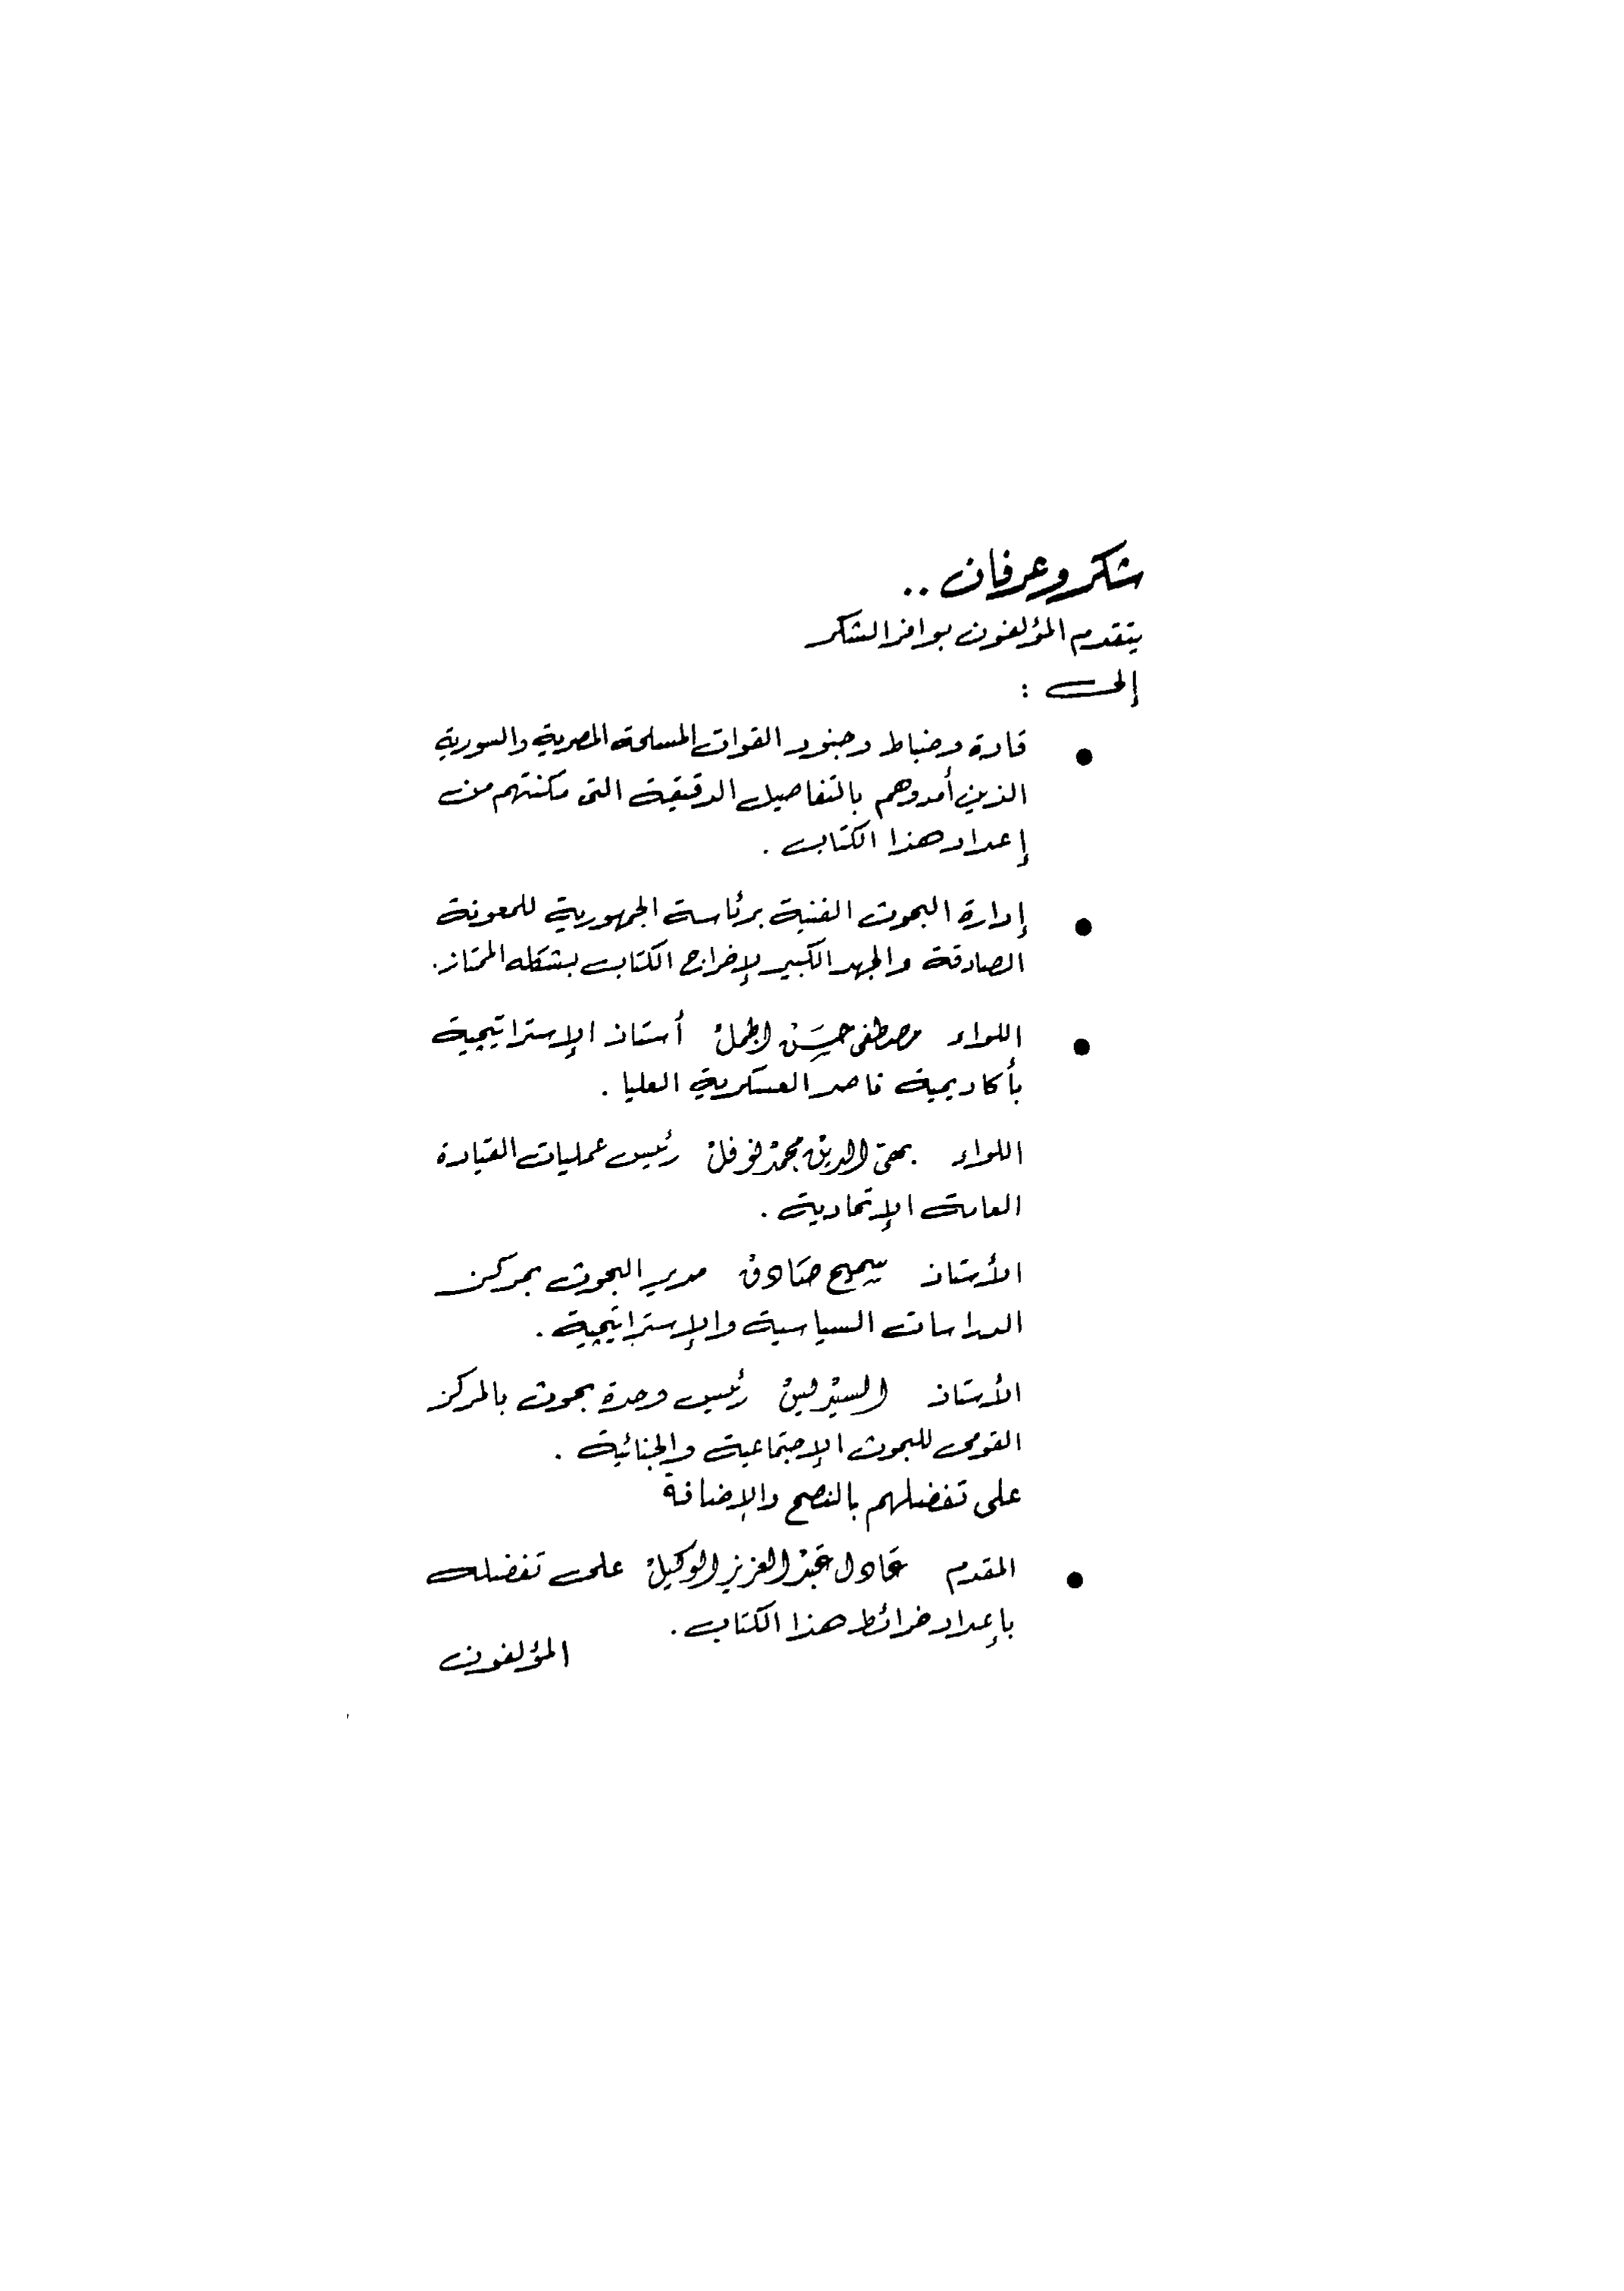 شكر وعرفان ..
يتقدم المؤلفون بوافر الشكر
إلى :
● قادة وضباط وجنود القوات المسلحة المصرية والسورية
الذين أمدوهم بالتفاصيل الدقيقة التى مكنتهم من
إعداد هذا الكتاب .
● إدارة البحوث الفنية برئاسة الجمهورية للمعونة
الصادقة والجهد الكبير لإخراج الكتاب بشكله الممتاز .
● اللواء مصطفى حسن الجمل أستاذ الإستراتيجية
بأكاديمية ناصر العسكرية العليا .
اللواء محى الدين محمد نوفل رئيس عمليات القيادة
العامة الإتحادية .
الأستاذ سميح صادق مدير البحوث بمركز
الدراسات السياسية والإستراتيجية .
الأستاذ السيد يس رئيس وحدة بحوث بالمركز
القومى للبحوث الإجتماعية والجنائية .
على تفضلهم بالنصح والإضافة
● المقدم عادل عبد العزيز الوكيل على تفضله
بإعداد خرائط هذا الكتاب .
المؤلفون